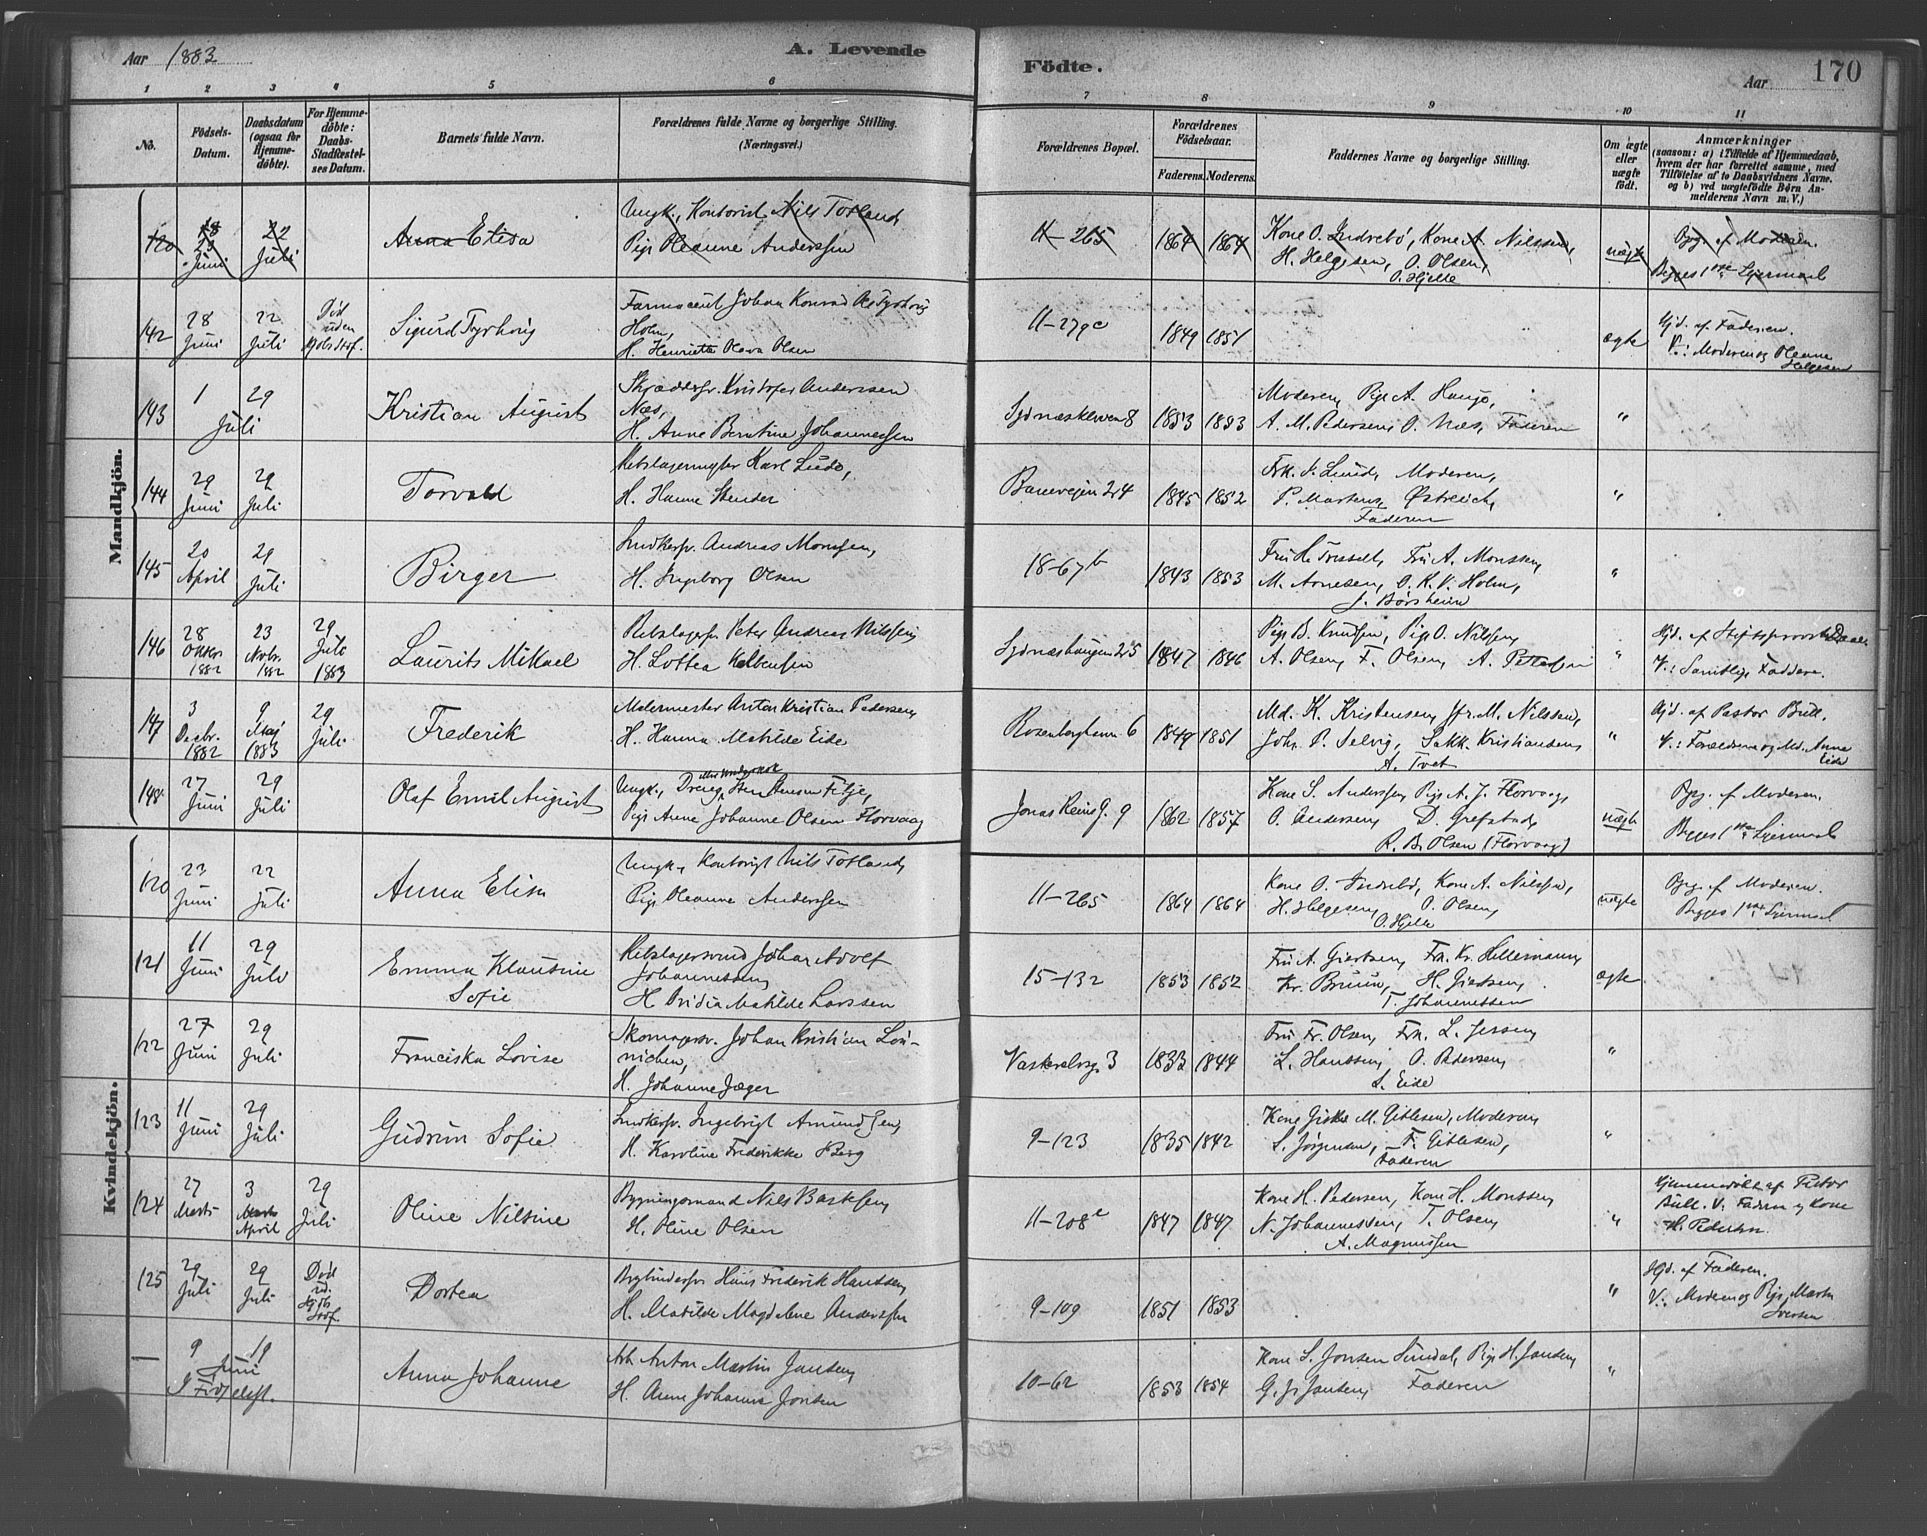 Aar 1883
A. Levende
Födte.
Aar
170
1 2 3 4 5 6 7 8 9 10 11
No.
Födsels-Datum.
Daabsdatum (ogsaa for Hjemme-döbte).
For Hjemme-döbte: Daabs-Stadfæstel-ses Datum.
Barnets fulde Navn.
Forældrenes fulde Navne og borgerlige Stilling. (Næringsvei.)
Forældrenes Bopæl.
Forældrenes Födselsaar.
Faderens. Moderens.
Faddernes Navne og borgerlige Stilling.
Om ægte eller uægte födt.
Anmærkninger
(saasom: a) i Tilfælde af Hjemmedaab, hvem der har forrettet samme, med Tilföielse af to Daabsvidners Navne. og b) ved uægtefödte Börn Anmelderens Navn m. V.)
Mandkjön.
120 18 23 Juni 22 Juli Anna Elisa
Ungk., Kontorist Nils Totland,
Pige Oleanne Anderssen
11-265 1864 1864
Kone O. Indrebö, Kone A. Nilssen,
H. Helgesen, O. Olsen,
O. Hjelte
uægte
Opg. af Moderen.
Begges 1ste Leiermaal
142 28 Juni 22 Juli Död uden
Sigurd Tyrhovig
Farmaceut Johan Konrad
Holm,
H. Henriette Olava Olsen
11-279c 1849 1851
ægte
Hjd. af Faderen.
V.: Moderen og Oleane Helgesen
143 1 29 Juli
Kristian August
Kristofer Anderssen
Næs,
H. Anne Berntine Johannessen
Sydnæskleven 8 1853 1853
Moderen, Pige A. Haugö,
A. M. Pedersen, O. Næs, Faderen
"
144 29 Juni 29 Juli
Torvald
Rebslagermester Karl Ludo,
H. Hanne Stender
Banevejen 24 1845 1852
Frk. J. Lund, Moderen,
P. Martens, Östreich,
Faderen
"
145 20 April 29 Juli
Birger
Snedkersv. Andreas Monsen,
H. Ingeborg Olsen
18-67b 1843 1853
Fru H. Trisselt, Fru A. Monssen,
M. Arnesen, O. K. V. Holm,
J. Börsheim
"
146 28 Oktbr. 1882 23 Novbr. 1882 29 Juli 1883
Laurits Mikael
Rebslagersv. Peter Andreas Nilssen,
H. Lottea Kolbensen
Sydnæshaugen 25 1847 1846
Pige B. Knutsen, Pige O. Nilsen,
A. Olsen, F. Olsen, A. Petersen
"
Hjd. af Stiftsprovst Daae
V.: Samtlige Faddere.
147 3 Decbr. 1882 9 Maj 1883 29 Juli
Frederik
Malermester Anton Kristian Pedersen,
H. Hanna Matilde Eide
Rosenbergterne 6 1849 1851
Md. K. Kristensen, Jfr. M. Nilssen,
Johs. P. Selvig, Sakk. Kristiansen,
A. Tvet
"
Hjd. af Pastor Bull.
V.: Forældrene og Md. Anna Eide
148 27 Juni 29 Juli
Olaf Emil August
Ungk., Dreng, Sten Stensen Fitje,
Pige Anne Johanne Olsen Florvaag
Jonas Reins G. 9 1862 1857
Kone S. Andersen, Pige A. J. Florvaag,
O. Andersen, D. Grefstad,
R. B. Olsen (Florvaag)
uægte
Opg. af Moderen.
Begges 1ste Leiermaal
Kvindekjön.
120 23 Juni 22 Juli
Anna Elisa
Ungk., Kontorist Nils Totland,
Pige Oleanne Anderssen
11-265 1864 1864
Kone O. Indrebö, Kone A. Nilssen,
H. Helgesen, O. Olsen,
O. Hjelte
uægte
Opg. af Moderen.
Begges 1ste Leiermaal
121 11 Juni 29 Juli
Emma Klausine
Sofie
Rebslagersvend Johan Adolf
Johannessen,
H. Matilde Larssen
15-132 1853 1852
Fru A. Giertsen, Frk. Kr. Hellemann,
Kr. Bruun, H. Giertsen,
T. Johannessen
ægte
122 27 Juni 29 Juli
Franciska Lovise
Skomagersv. Johan Kristian Lön-
nichen,
H. Johanne Jæger
Vaskerelvsg. 3 1833 1844
Fru Fr. Olsen, Frk. L. Jessen,
L. Hanssen, O. Pedersen,
L. Eide
"
123 11 Juni 29 Juli
Gudrun Sofie
Snedkersv. Ingebrigt Amundsen,
H. Karoline Frederikke Berg
9-123 1835 1842
Kone Giske M. Gitlesen, Moderen,
S. Jörgensen, F. Gitlesen,
Faderen
"
124 27 Marts 3 Marts April 29 Juli
Oline Nilsine
Bygningsmand Nils Bastesen,
H. Oline Olsen
11-208e 1847 1847
Kone H. Pedersen, Kone H. Monssen,
N. Johannessen, T. Olsen,
A. Magnussen
"
Hjemmedöbt af Pastor
Bull. V. Faderen og Kone
H. Pedersen.
125 29 Juli 29 Juli Död
Dortea
Hans Frederik Hanssen,
H. Matilde Magdalene Anderssen
9-109 1851 1853
"
Hjd. af Faderen.
V.: Moderen og Pige Marta
Iversen
— 9 19 Juni
J Födselsst.
Anna Johanne
Arb. Anton Martin Jansen,
H. Anne Johanne Jonsen
10-62 1853 1854
Kone S. Jonsen Sundal, Pige H. Jansen,
G. J. Jansen, Faderen
"